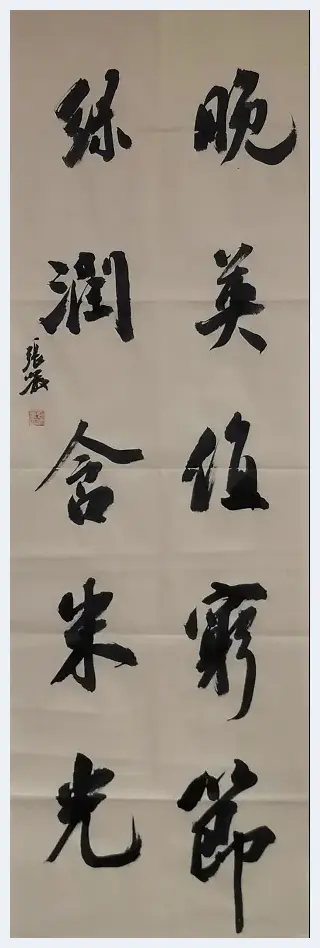 晚英值窮節
綠潤含朱光
張